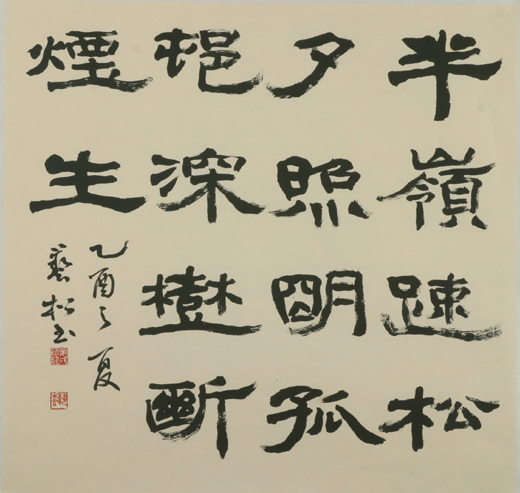 半嶺疎松
夕照明孤
邨深樹斷
煙生
乙酉之夏
藝松书